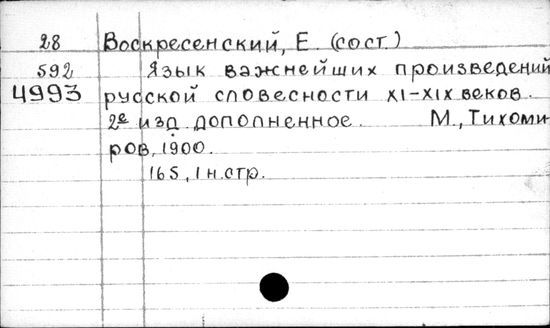 28 Воскресенский, Е. (сост.)
592 Язык важнейших произведений
4993 русской словесности XI-XIX веков.
2е изд. дополненное. М., Тихоми
ров, 1900.
165, 1 н.стр.